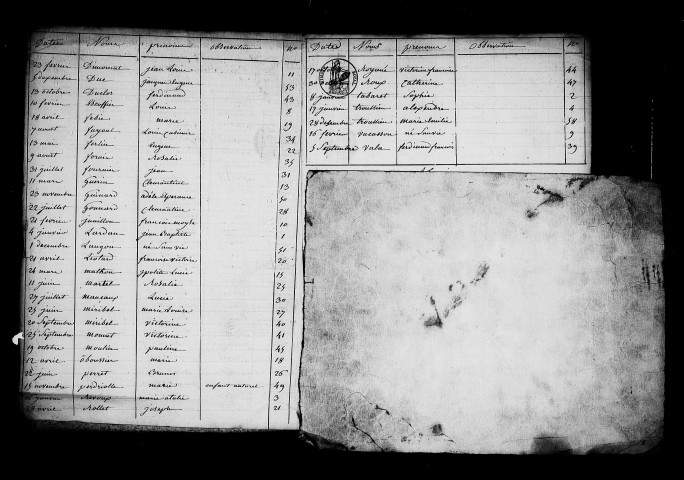 Dates Noms prenoms observation no
23 fevrier Dumonnet jean Louis 11
5 Septembre Duc jacques eugene
13 octobre Duclos ferdinand 43
10 fevrier Louis 8
18 avril fabre marie 19
7 aoust fayout Louis casimir 34
13 mai forlin Eugene 22
9 aoust forain Rosalie 35
31 juillet fournier jean 31
11 mars guérin Clementine 13
23 novembre guinard adele Esperance 50
22 juillet gounard Clementine 28
21 fevrier jumillon francois moyse 10
4 janvier Lardeu jean Baptiste 1
1 decembre Laugon né Sans vie 51
21 avril Liotard francoise victoire 20
26 mars mathon ipolite Lucie 15
11 juin martel Rosalie 25
27 juillet maneaux Lucie 30
25 juin miribel marie Louise 27
20 Septembre miribel victorine 40
25 Septembre monnet victorine 41
19 octobre moulin pauline 45
12 avril oboussier marie 18
22 juin perret 26
15 novembre perdriolle marie enfant naturel 49
janvier Ravoux marie atalie 3
avril Rollet joseph 21
Dates Noms prenoms Observation no
17 Royané victorin francois 44
30 Roux Catherine 47
8 janvier tabaret Sophie 2
17 janvier troullin alexandre 4
28 decembre troullin marie Emilie 58
16 fevrier vacasson né Sans vie 9
5 Septembre vala ferdinand francois 39